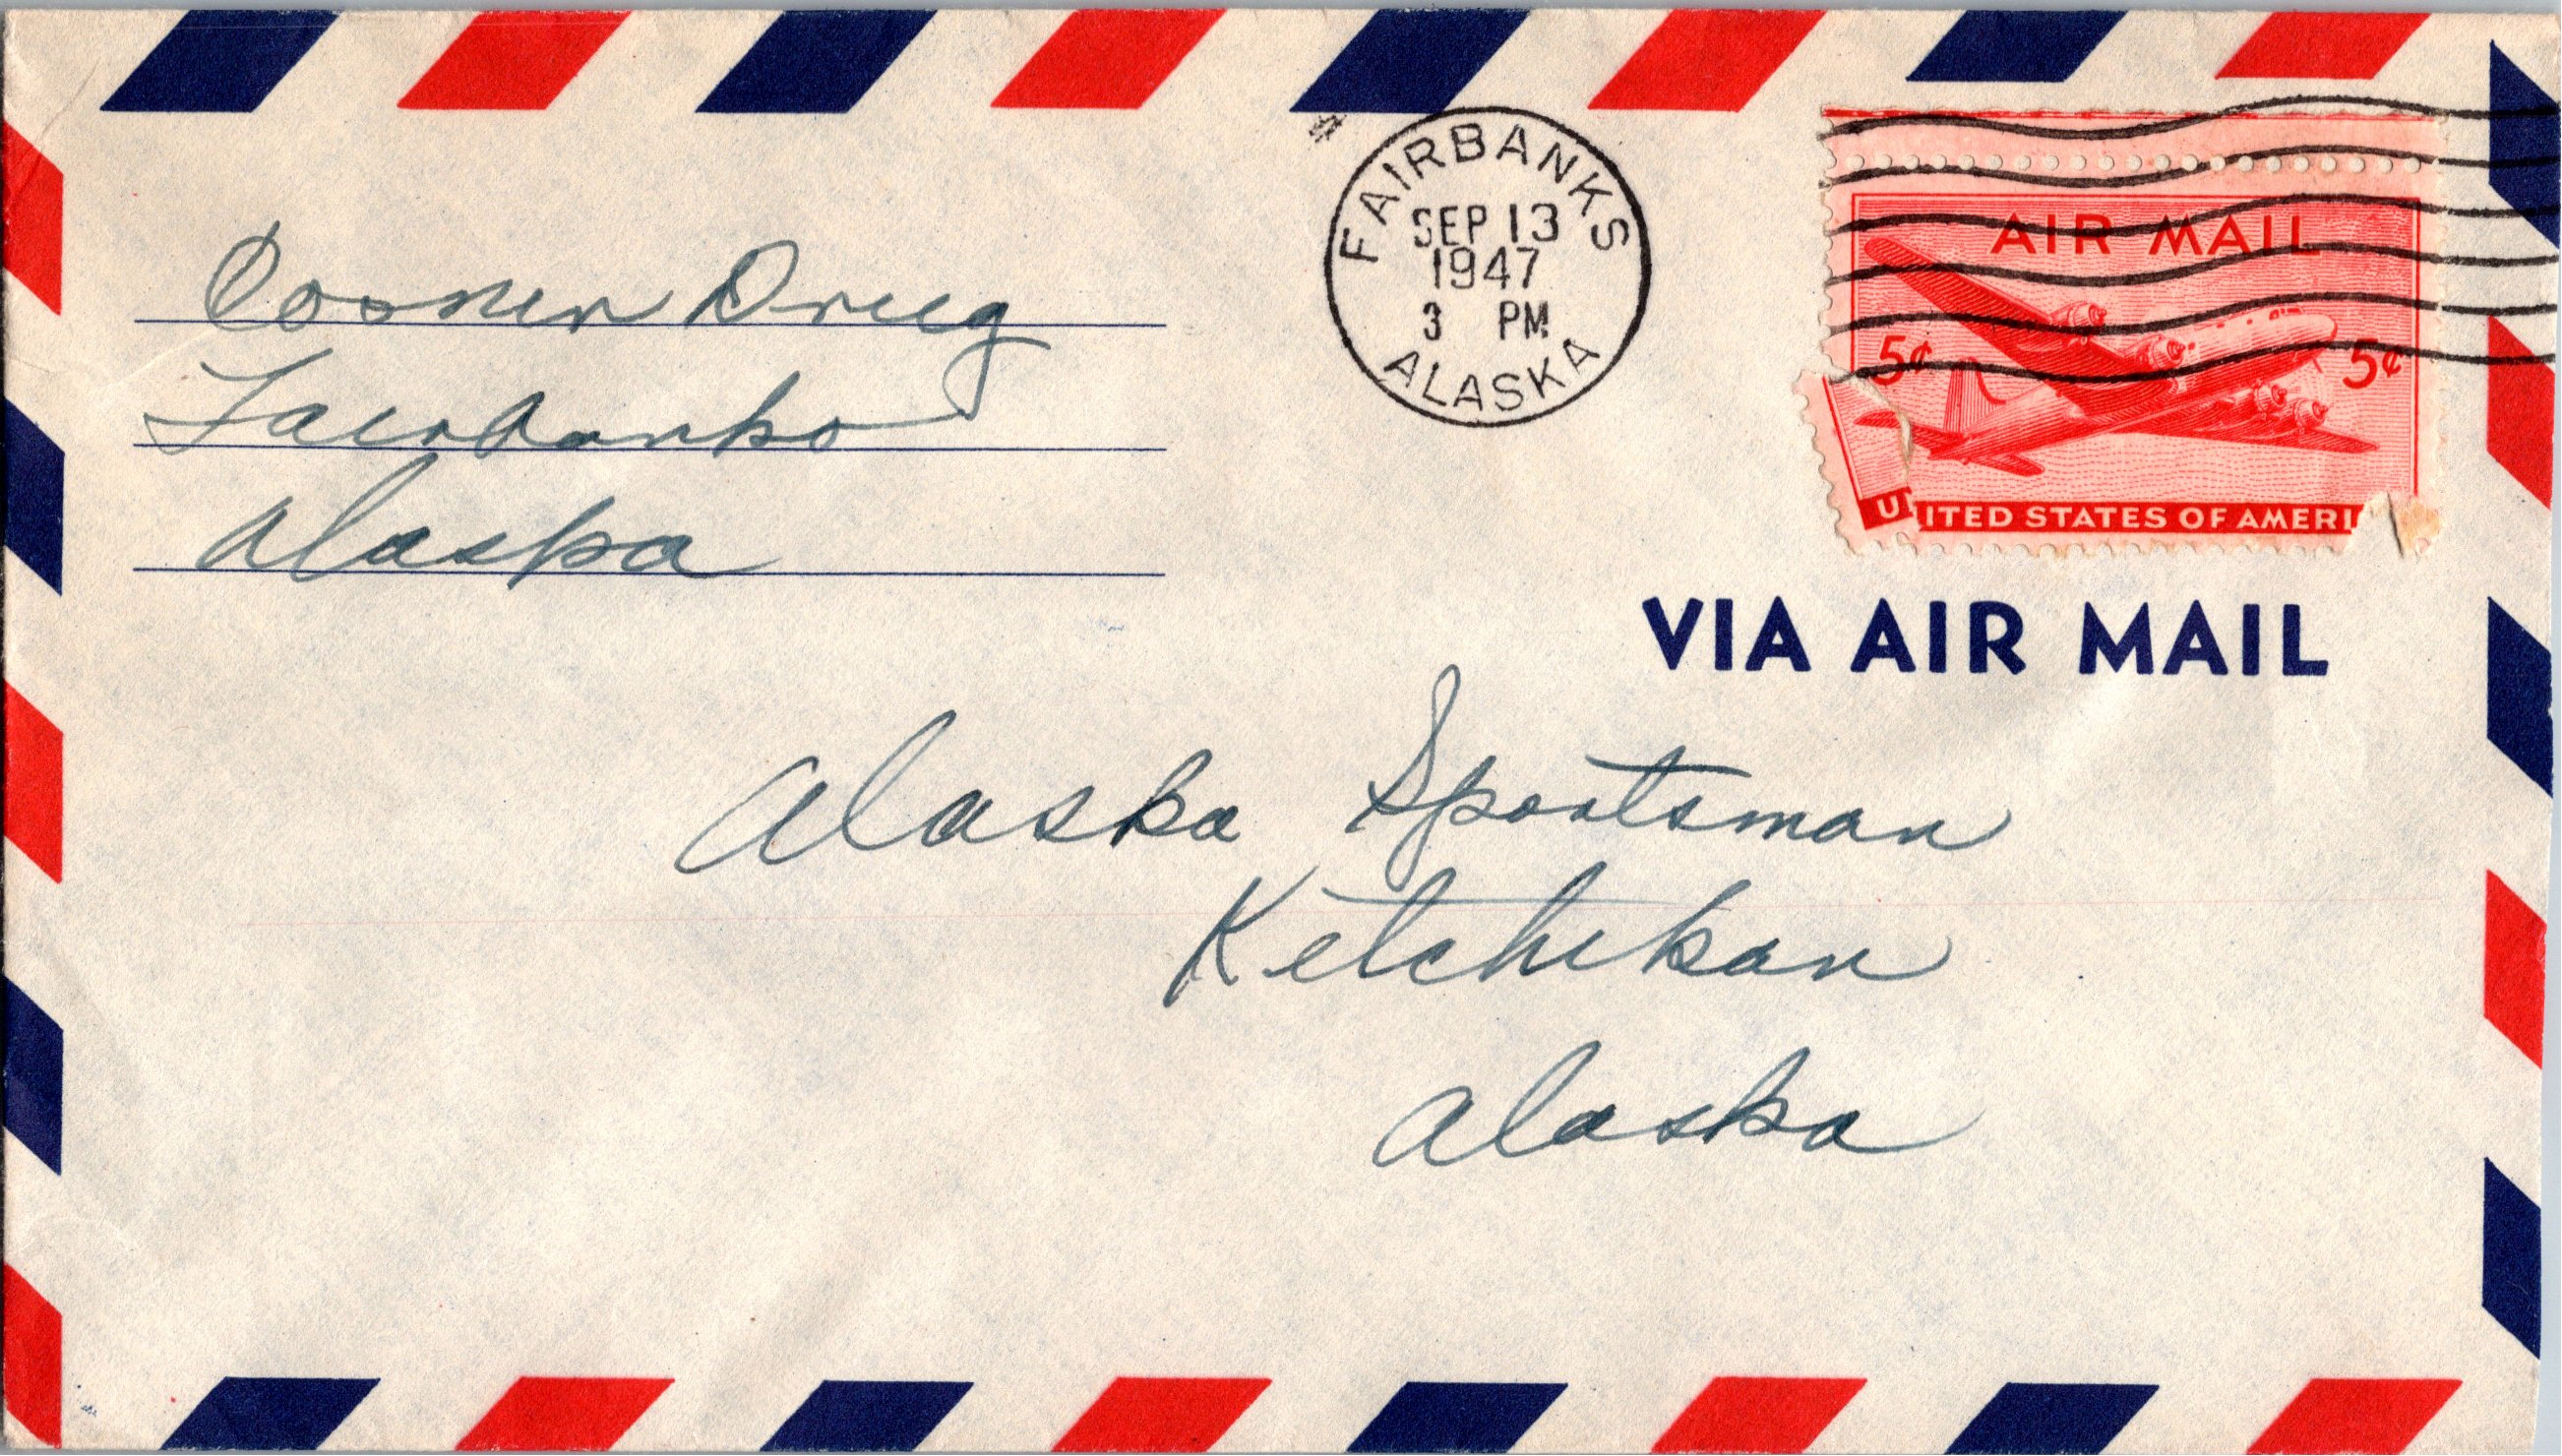 Cosner Drug
Fairbanks
Alaska
FAIRBANKS
SEP 13
1947
3 PM
ALASKA
AIR MAIL
5¢ 5¢
UNITED STATES OF AMERI
VIA AIR MAIL
Alaska Sportsman
Ketchikan
Alaska